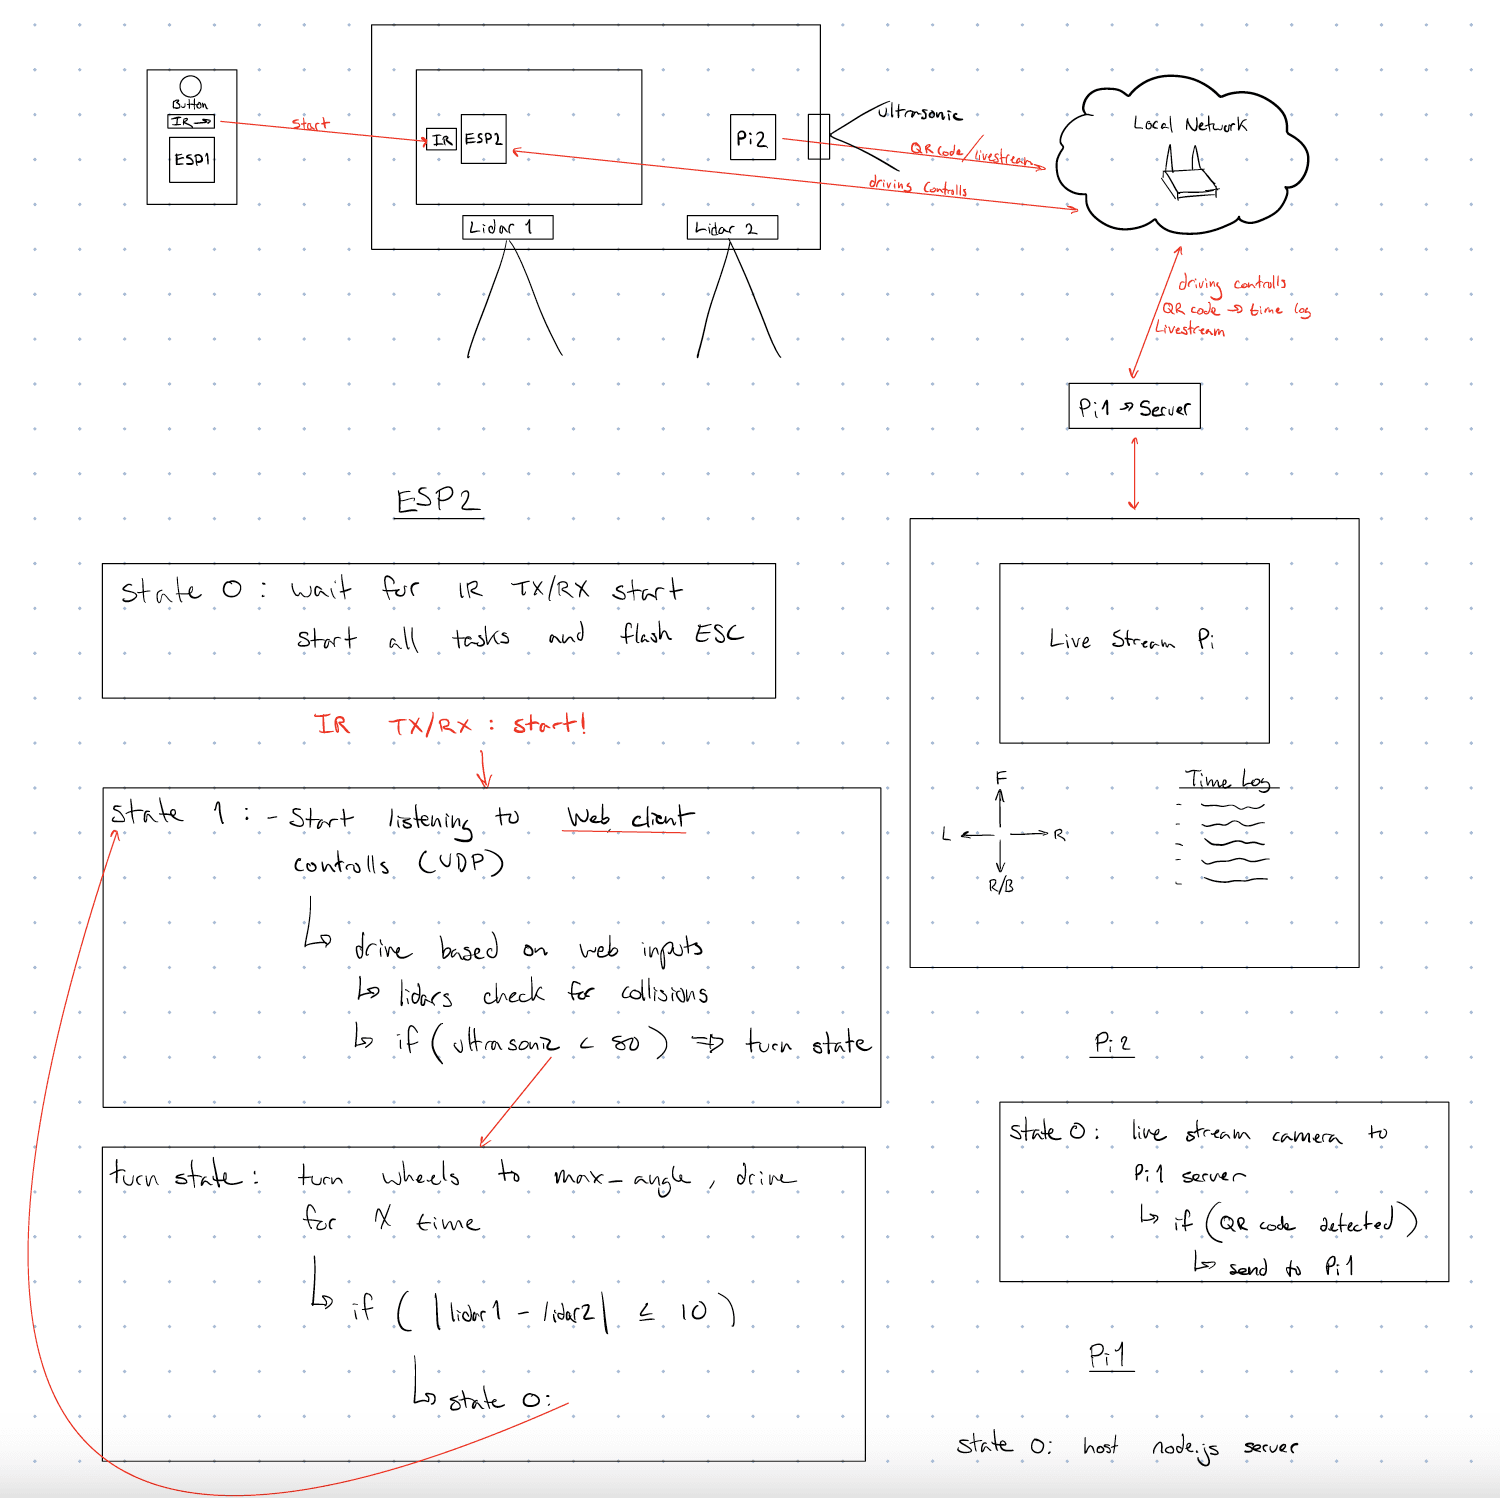 Button
IR →
ESP1
start
IR
ESP2
Pi2
ultrasonic
QR code/livestream
driving controlls
Local Network
Lidar 1
Lidar 2
driving controlls
QR code → time log
Livestream
Pi1 → Server
Live Stream Pi
F
L
R
R/B
Time Log
ESP2
state 0 : wait for IR TX/RX start
start all tasks and flash ESC
IR TX/RX : start!
state 1 : - Start listening to Web client
controlls (UDP)
↳ drive based on web inputs
↳ lidars check for collisions
↳ if (ultrasonic < 80) ⇒ turn state
turn state : turn wheels to max_angle, drive
for X time
↳ if ( |lidar1 - lidar2| ≤ 10 )
↳ state 0:
Pi2
state 0 : live stream camera to
Pi1 server
↳ if (QR code detected)
↳ send to Pi1
Pi1
state 0: host node.js server